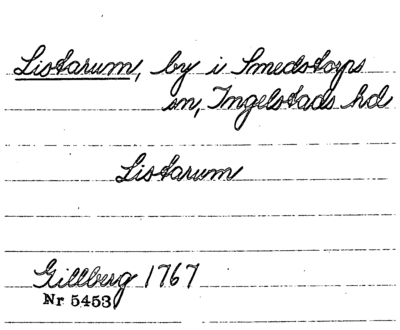 Listarum, by i Smedstorps
sn, Ingelstads hd
Listarum
Gillberg 1767
Nr 5453